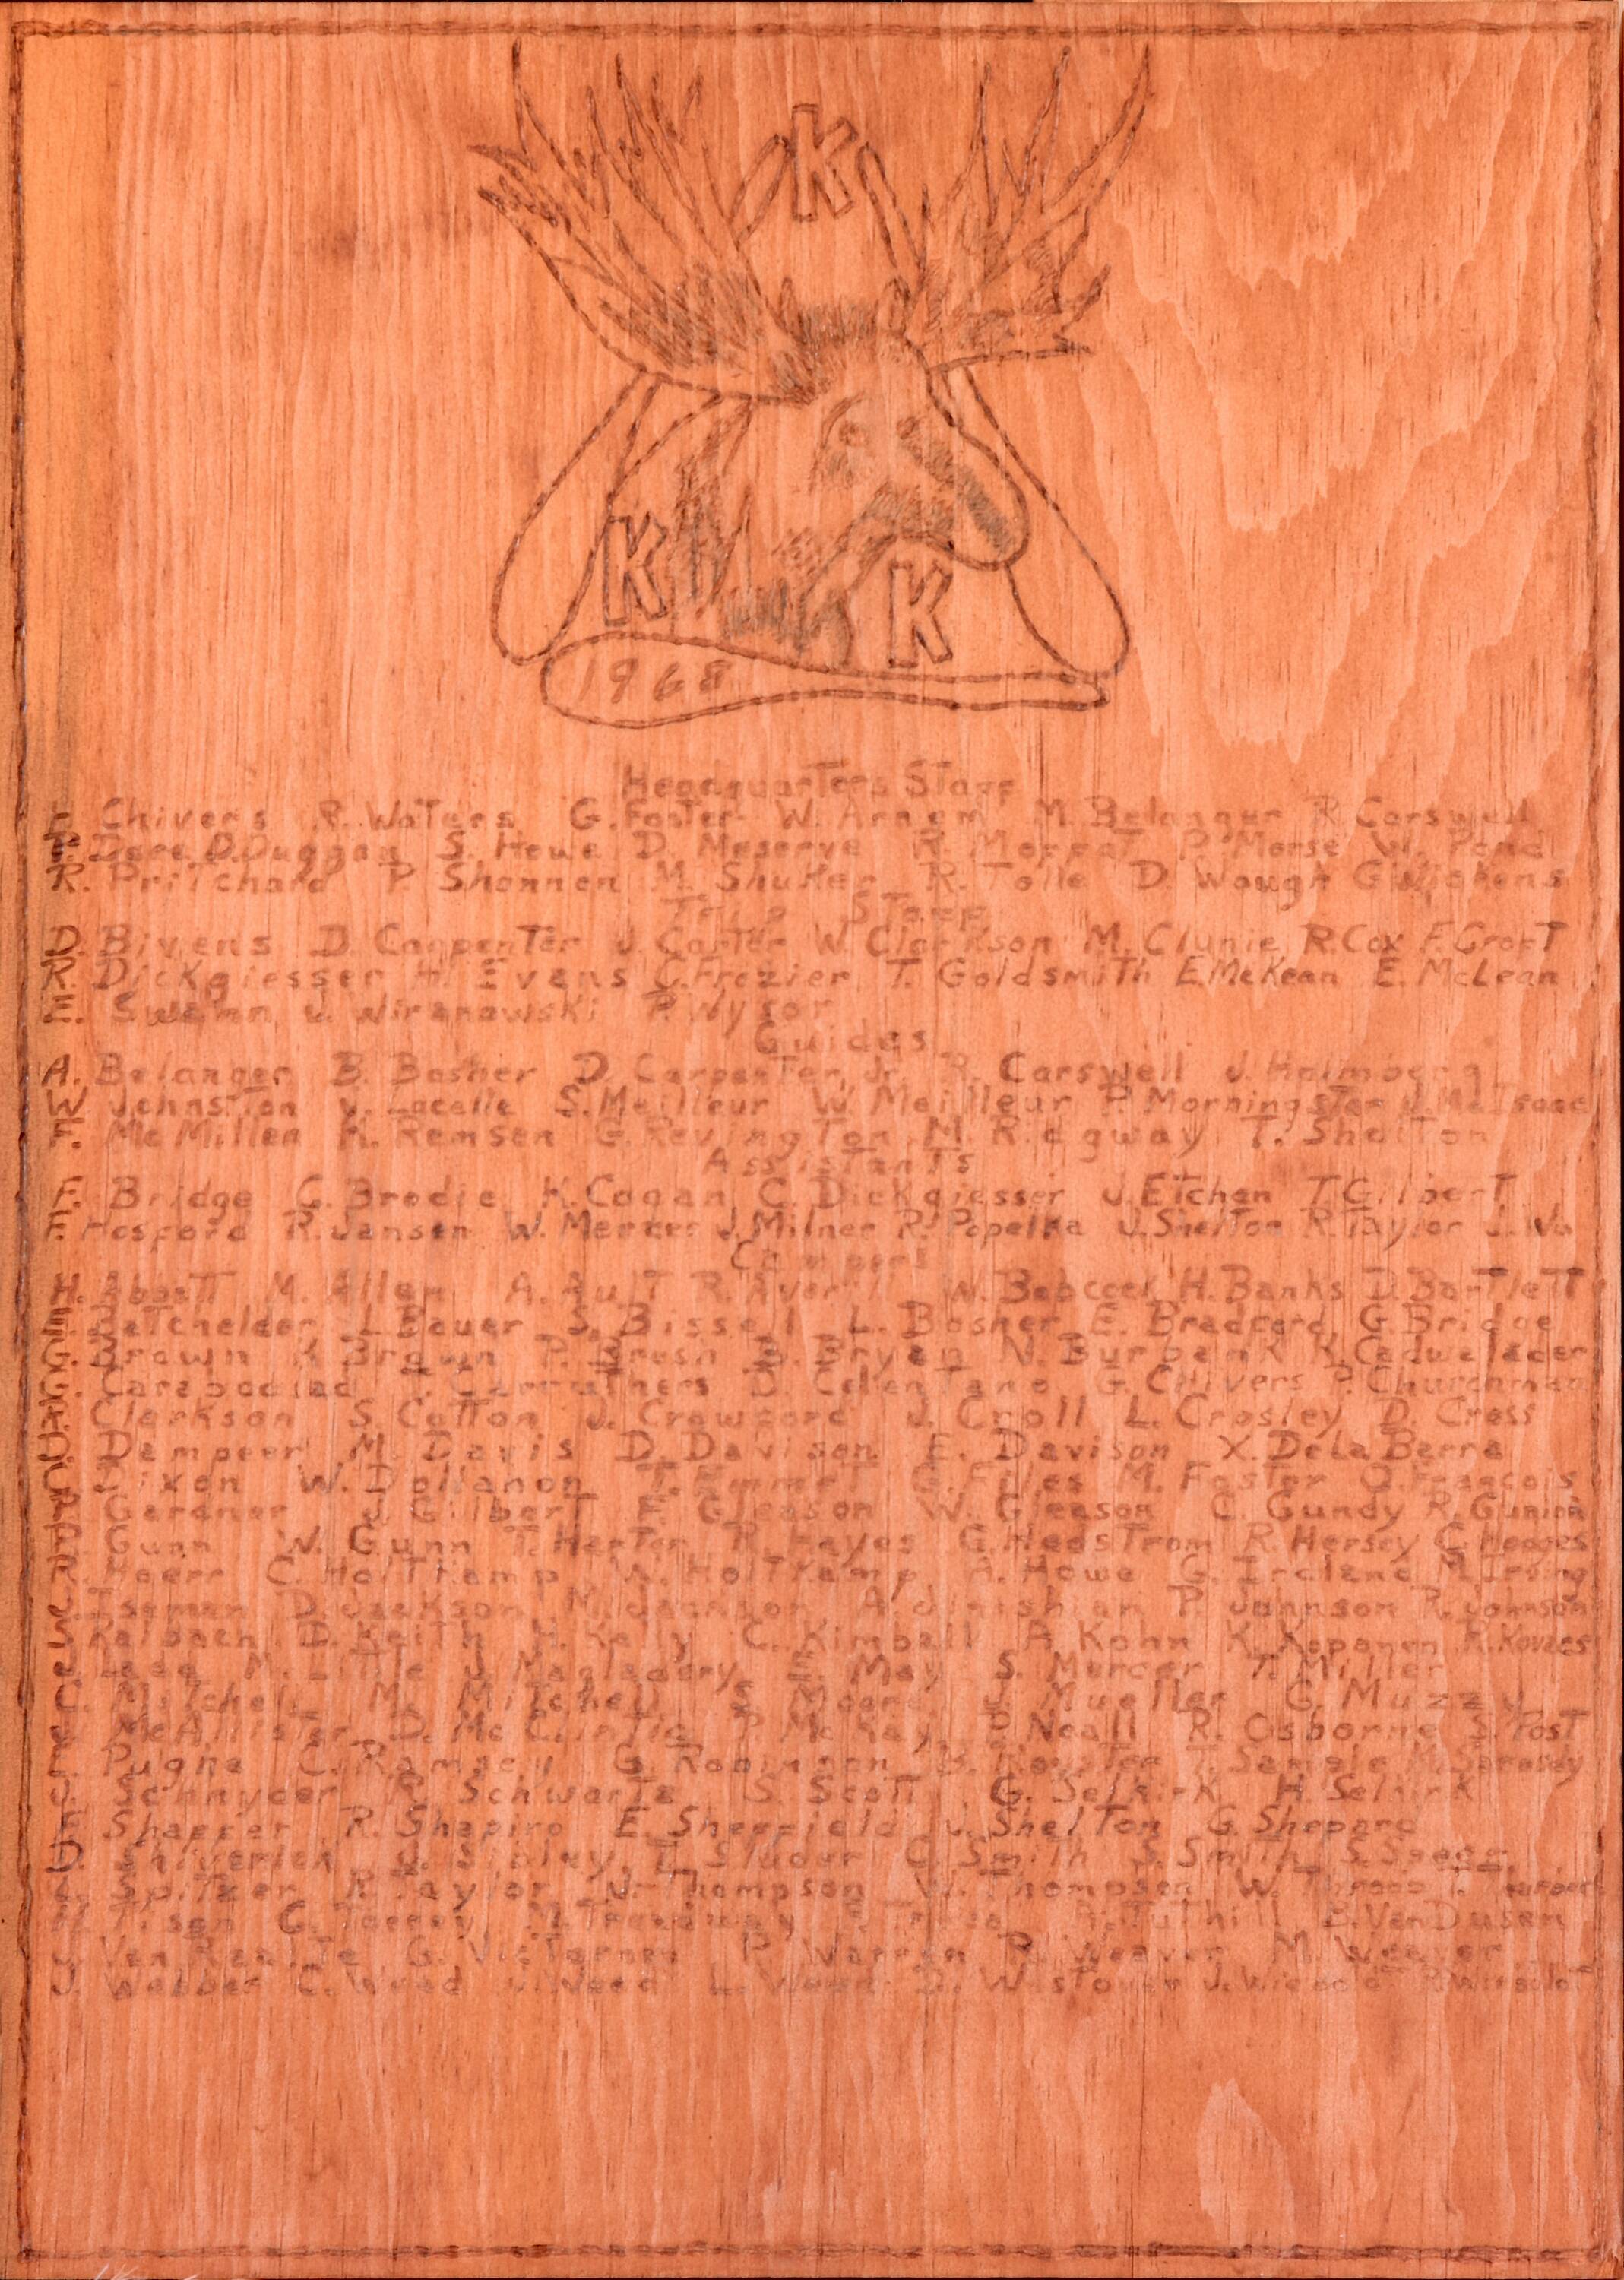 K
K K
1968
Headquarters Staff
Chivers R. Waters G. Foster W. Arnam M. Belanger R. Carswell
Dore D. Duggan S. Howe D. Meserve R. Moffat P. Morse W. Pond
R. Pritchard P. Shannen M. Shuker R. Tolle D. Waugh G. Wickens
Trip Staff
D. Bivens D. Carpenter J. Carter W. Clarkson M. Clunie R. Cox F. Groft
R. Dickgiesser H. Evans C. Frazier T. Goldsmith E. McKean E. McLean
E. Swann J. Wiranowski R. Wysor
Guides
A. Belanger B. Bosher D. Carpenter, Jr. R. Carswell J. Holmberg
W. Johnston V. Lacelle S. Meilleur W. Meilleur P. Morningster
F. McMillen K. Remsen G. Revington M. Ridgway T. Shelton
Assistants
F. Bridge C. Brodie K. Cogan C. Dickgiesser J. Etchen T. Gilbert
F. Hosford R. Jansen W. Mercer J. Milner R. Popelka J. Shelton R. Taylor J. Wu
Campers
Abbott M. Allen A. Ault R. Averill W. Babcock H. Banks D. Bartlett
Batchelder J. Bauer S. Bissell L. Bosher E. Bradford G. Bridge
G. Brown K. Brown P. Brush B. Bryan N. Burbank K. Cadwalader
Carruthers D. Celentano G. Chivers P. Churchman
Clarkson S. Cotton J. Crawford J. Croll L. Crosley D. Cross
Dampeer M. Davis D. Davison E. Davison X. DeLa Barra
Dixon W. Dollanon T. Emmert G. Files M. Foster O. Francois
Gardner J. Gilbert F. Gleason W. Gleason C. Gundy R. Gunion
Gunn W. Gunn T. Harter R. Hayes G. Hedstrom R. Hersey C. Hodges
Hoerr C. Holtkamp W. Holtkamp A. Howe G. Ireland M. Irving
Iseman D. Jackson M. Jackson P. Johnson R. Johnson
Kalbach D. Keith H. Kelly C. Kimball A. Kohn K. Koponen R. Kovacs
Laag M. Little J. Maclagery E. May S. Mercer T. Miller
Mitchell M. Mitchell Moore J. Mueller G. Muzzy
McAllister D. McClintic P. McKay B. Neall R. Osborne S. Post
C. Ramsey G. Robinson B. Royster T. Sample
Schnyder R. Schwarta S. Scott G. Selkirk H. Selkirk
Shaffer R. Shapiro E. Sheffield J. Shelton G. Shepard
Sibley E. Sluder C. Smith S. Smith
Spitzer R. Taylor J. Thompson W. Thompson W. Throop
G. Toffey M. Treadway R. Tuthill B. Van Dusen
P. Warren R. Weaver M. Weaver
J. Webber C. Weed J. Weed L. Weed D. Westover